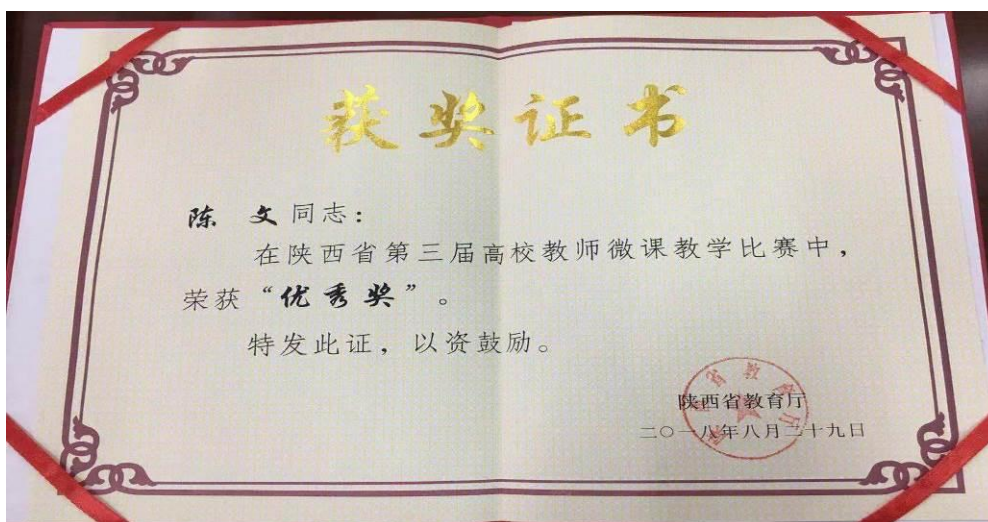 获奖证书
陈 文同志：
在陕西省第三届高校教师微课教学比赛中，
荣获“优秀奖”。
特发此证，以资鼓励。
陕西省教育厅
二〇一八年八月二十九日
陕西省教育厅